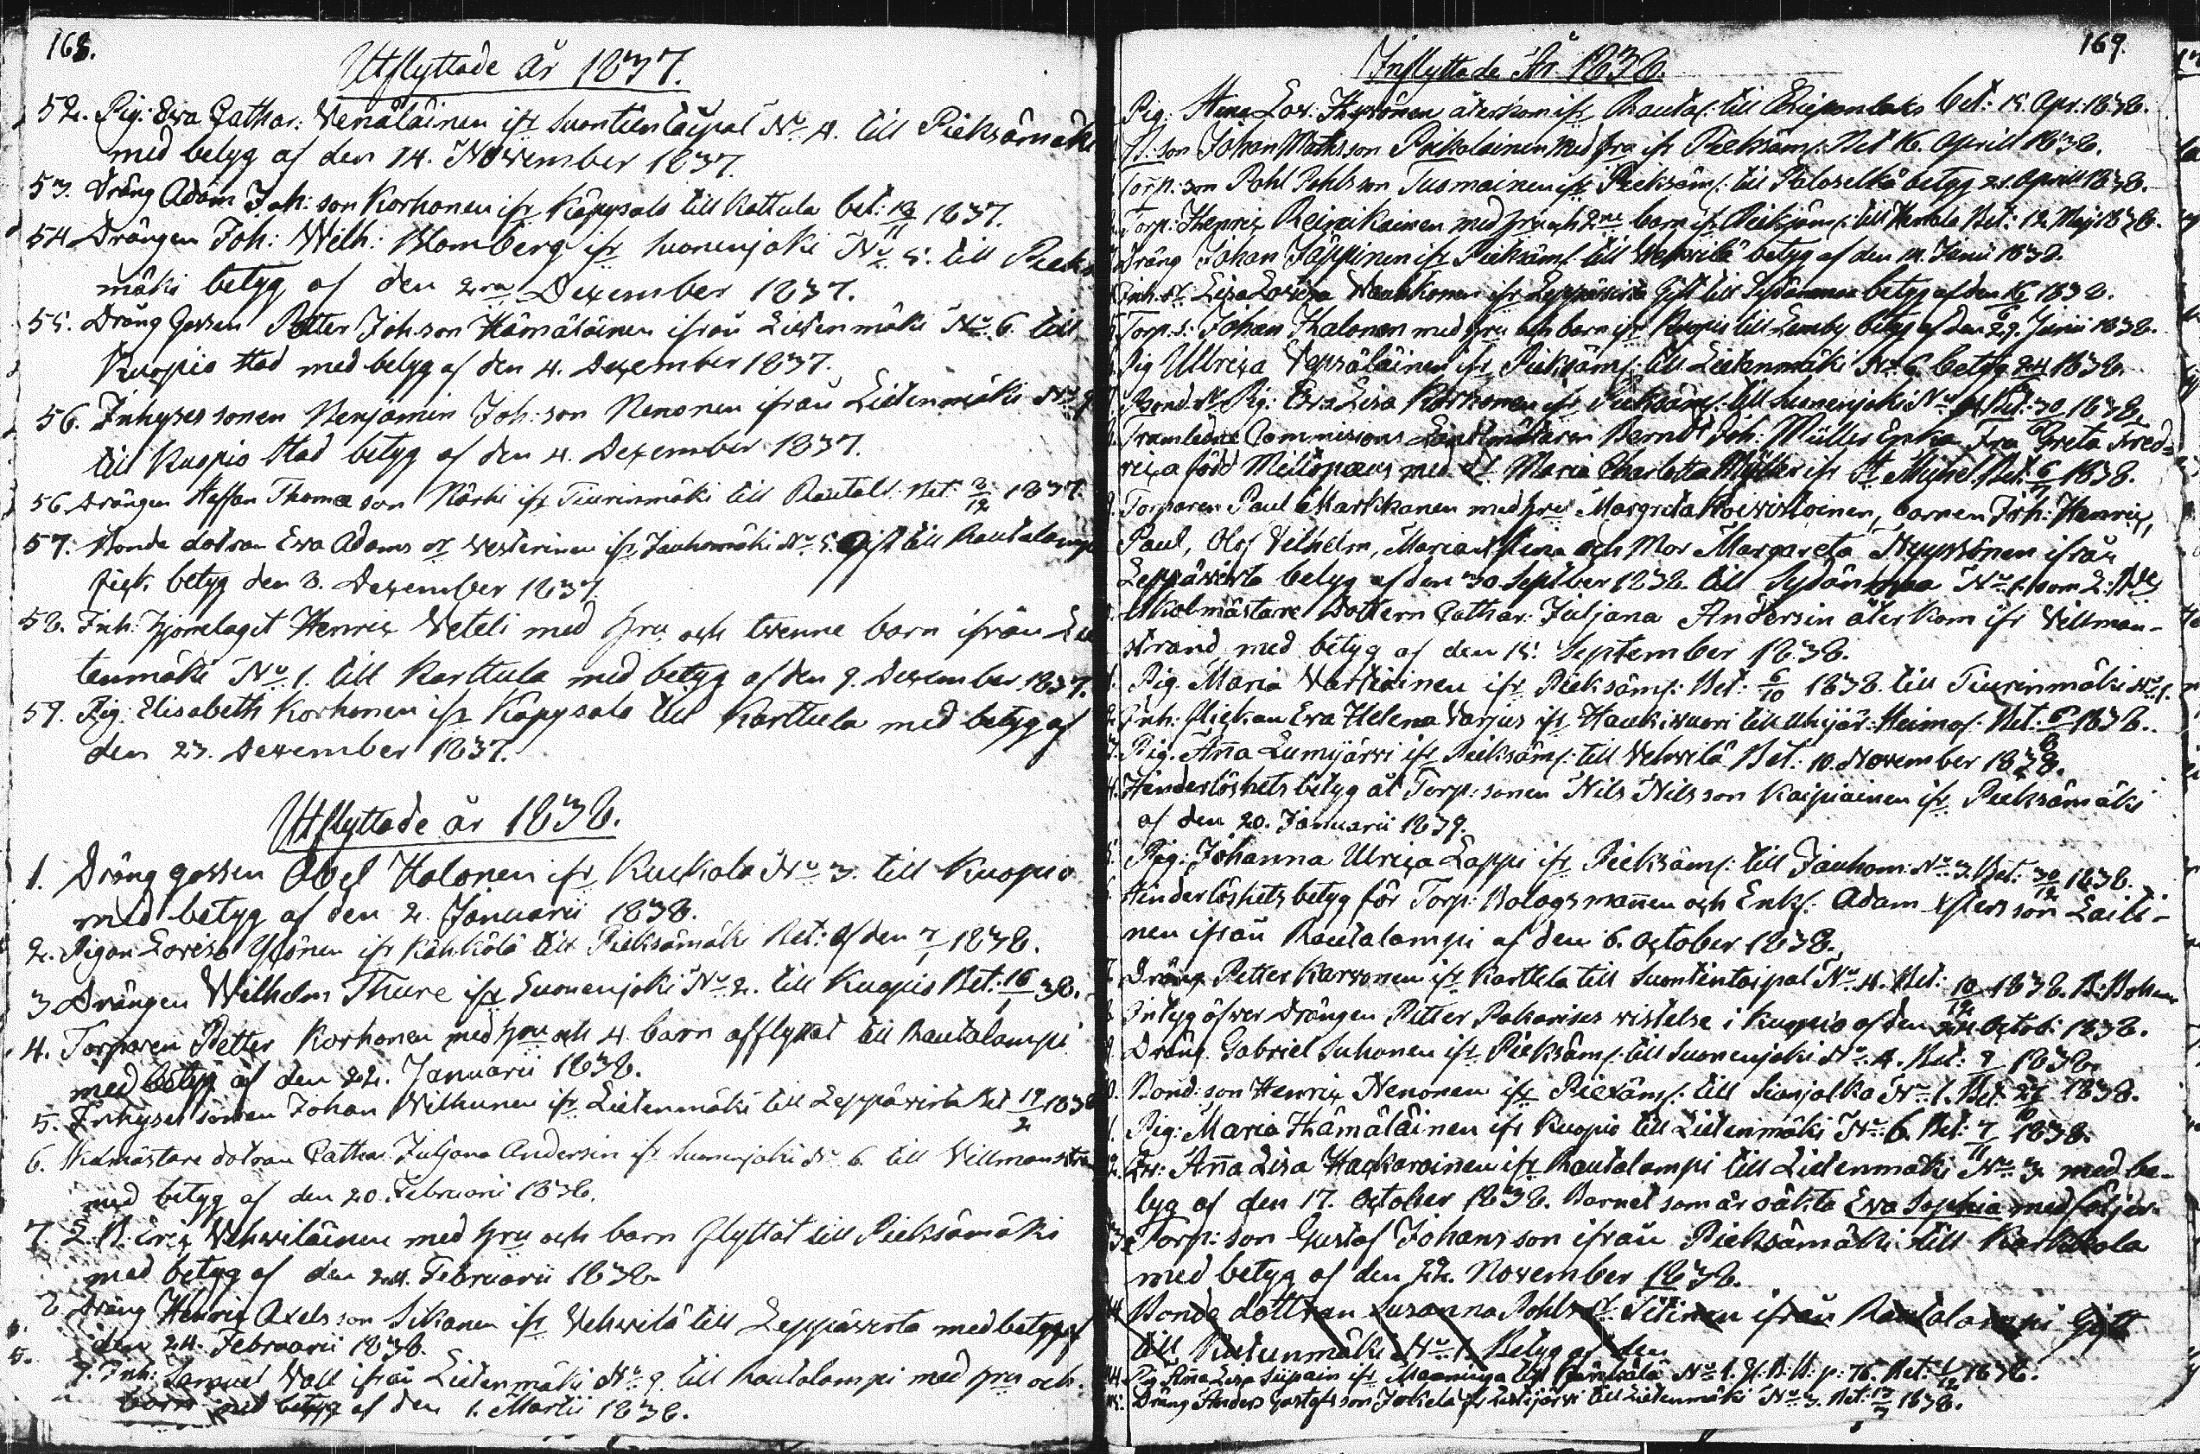 168.
Utflyttade år 1837.
52. Pig: Eva Cathar: Venäläinen ifr Suontientaipal No 4. till Pieksämäki
med betyg af den 14. November 1837.
53. Dräng Adam Joh: son Korhonen ifr Käpysalo till Kattula bet: 18/11 1837.
54 Drängen Joh: Wilh: Blomberg ifr Suonenjoki No 5. till Pieks
mäki betyg af den 2ra Dexember 1837.
55. Dräng Gossen Petter Joh:son Hämäläinen ifrån Lietenmäki No 6. till
Kuopio stad med betyg af den 4. Dexember 1837.
56. Inhyses sonen Benjamin Joh: son Nenonen ifrån Lietenmäki No 9
till Kuopio stad betyg af den 4. Dexember 1837.
56 Drängen Staffan Thomæ son Närhi ifr Tiurinmäki till Rautal: Bet: 3/12 1837.
57. Bonde dotran Eva Adams dr Westerinen ifr Jauhomäki No 5. Gift till Rautalampi
betyg den 3. Dexember 1837.
58. Inh: Hjonelaget Henrix Veteli med hru och twenne barn ifrån Lie
tenmäki No 1. till Karttula med betyg af den 9. Dexember 1837.
59. Pig: Elisabeth Korhonen ifr Käpysalo till Karttula med betyg af
den 23. Dexember 1837.
Utflyttade år 1838.
1. Dräng gossen Abel Halonen ifr Kukkola No 3. till Kuopio
med betyg af den 2. Januarii 1838.
2. Pigan Lovisa Ylönen ifr Kähkölä till Pieksämäki Bet: af den 7/1 1838.
3 Drängen Wilhelm Thure ifr Suonenjoki No 2. till Kuopio Bet: 16/1 38.
4. Torparen Petter Korhonen med hru och 4 barn afflyttat till Rautalampi
med betyg af den 22. Januarii 1838.
5. Inhyses sonen Johan Vilhunen ifr Lietenmäki till Leppävirta Bet 19/2 1838
6. Skolmästare dotran Cathar Juljana Andersin ifr Suonenjoki No 6. till Villmanstra
med betyg af den 20. Februarii 1838.
7. S. B. Erix Vehviläinen med hru och barn flyttat till Pieksämäki
med betyg af den 24. Februarii 1838.
8. Dräng Henrix Axels son Sikanen ifr Vehvilä till Leppävirta med betyg af
den 24. Februarii 1838.
9. Inh: Samuel Wall ifrån Lietenmäki No 9. till Rautalampi med hru och
barn med betyg af den 1. Martii 1838.
169.
Inflyttade År 1838.
Pig: Stina Lov: Hyvönen återkom ifr Rautal: till bet: 15. Apr: 1838.
son Johan Maths son Pirkolainen med fra ifr Pieksäm: Bet 16. Aprill 1838.
Torp: son Pohl Pohls son Tusmainen ifr Pieksäm: till Paloselkä betyg 21. Aprill 1838.
Torp: Henrix Reinikainen med hru och 2ne barn ifr Pieksäm: till Bet: 12. Maj 1838.
Dräng Johan Jäppinen ifr Pieksäm: till Vehvilä betyg af den 14. Junii 1838.
Inh. dr Lisa Lovisa ifr Leppävirta Gift till Sydänmaa betyg af den 1838.
Torp: s: Johan Halonen med hru och barn ifr Kuopio till Lemby betyg af den 29. Junii 1838.
Pig Ullrixa Vepsäläinen ifr Pieksäm: till Lietenmäki No 6 betyg 24 1838.
Bond: dr Pig: Eva Lisa Korhonen ifr Pieksäm: till Suonenjoki No Bet: 30/6 1838.
Framledne Commissions Landtmätaren Berndt Joh: Müller Enka Fru Greta Fred-
rixa född Meliopæus med dr Maria Charlotta Müller ifr St Mychel Bet: 6/7 1838.
Torparen Paul Martikanen med hru Margreta Koivistoinen, barnen Joh: Henrix,
Paul, Olof Vilhelm, Maria Stina och Mor Margareta Nyyssönen ifrån
Leppävirta betyg af den 30 Septber 1838. till Sydänmaa No 1. som L:
Skolmästare Dottern Cathar: Juljana Andersin återkom ifr Villman-
strand med betyg af den 15. September 1838.
Pig. Maria Vartiainen ifr Pieksäm: Bet: 6/10 1838. till Tiurinmäki No 1.
Inh: flickan Eva Helena Varjus ifr Haukivuori till Bet. 5/8 1838.
Pig. Anna Lumijärvi ifr Pieksäm: till Vehvilä Bet: 10. November 1838.
Hinderlöshets betyg åt Torp: sonen Nils Nils son Kaipiainen ifr Pieksämäki
af den 20. Januarii 1839.
Pig: Johanna Ulrixa Lappi ifr Pieksäm: till Jauhom: No 3. Bet: 30/12 1838.
Hinderlöshets betyg för Torp: Bolagsmannen och Enkl: Adam son Laiti-
nen ifrån Rautalampi af den 6. October 1838.
Dräng Petter Karvonen ifr Karttula till Suontientaipal No 4. Bet: 10/12 1838.
Intyg öfver Drängen Petter Pakarises vistelse i Kuopio af den Octob: 1838.
Dräng Gabriel Suhonen ifr Pieksäm: till Suonenjoki No 4. Bet: 1838.
Bond: son Henrix Nenonen ifr Piexäm: till No 1. Bet 27/10 1838.
Pig: Maria Hämäläinen ifr Kuopio till Lietenmäki No 6 Bet: 7/11 1838.
Anna Lisa ifr Rautalampi till Lietenmäki No 3. med be-
tyg af den 17. October 1838. Barnet som är oäkta Eva Sophia medföljer.
Torp: son Gustaf Johans son ifrån Pieksämäki till
med betyg af den 22. November 1838.
Bonde dottran Susanna Pohls dr Titinen ifrån Rautalampi Gift
till Lietenmäki No 1. Betyg af den
14. Pig Anna Lisa ifr Maaninga till No 1. p: 76. Bet: 1838.
15. Dräng Anders Gustafs son Jokela ifr till Lietenmäki No 3. Bet: 1838.